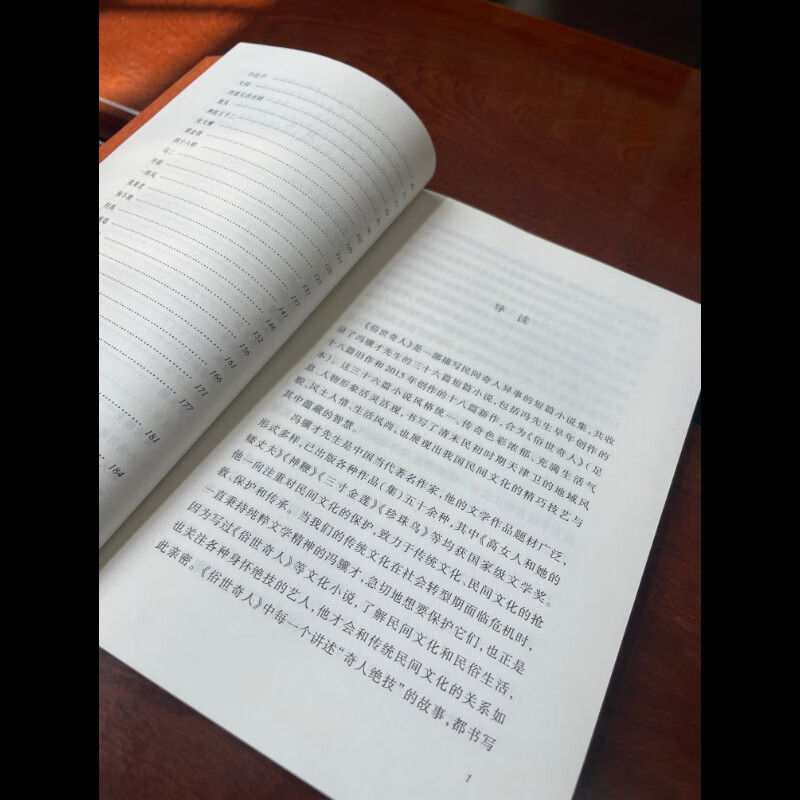 大回
刘道元活出殡
黑头
神医王十二
皮大嘴
黄金指
四十八样
马二
冷脸
一阵风
张果老
狗不理
钓鸡
137
141
146
152
161
166
171
177
181
184
导 读
《俗世奇人》是一部描写民间奇人异事的短篇小说集，共收
录了冯骥才先生的三十六篇短篇小说，包括冯先生早年创作的
十八篇旧作和2015年创作的十八篇新作，合为《俗世奇人》（足
本）。这三十六篇小说风格统一、传奇色彩浓郁、充满生活气
息、人物形象活灵活现，书写了清末民初时期天津卫的地域风
貌、风土人情、生活风尚，也展现出我国民间文化的精巧技艺与
其中蕴藏的智慧。
冯骥才先生是中国当代著名作家，他的文学作品题材广泛，
形式多样，已出版各种作品（集）五十余种，其中《高女人和她的
矮丈夫》《神鞭》《三寸金莲》《珍珠鸟》等均获国家级文学奖。
他一向注重对民间文化的保护，致力于传统文化、民间文化的抢
救、保护和传承。当我们的传统文化在社会转型期面临危机时，
一直秉持纯粹文学精神的冯骥才，急切地想要保护它们，也正是
因为写过《俗世奇人》等文化小说，了解民间文化和民俗生活，
也关注各种身怀绝技的艺人，他才会和传统民间文化的关系如
此亲密。《俗世奇人》中每一个讲述“奇人绝技”的故事，都书写
1